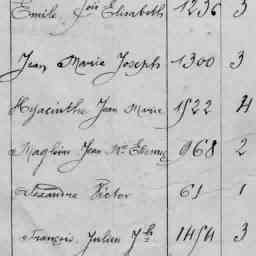 Emile fois Elisabeth 1236 3
Jean Marie Joseph 1300 3
Hyacinthe Jean Marie 1522 4
Jean Me 968 2
Alexandre Victor 61 1
François Julien Jh 1454 3